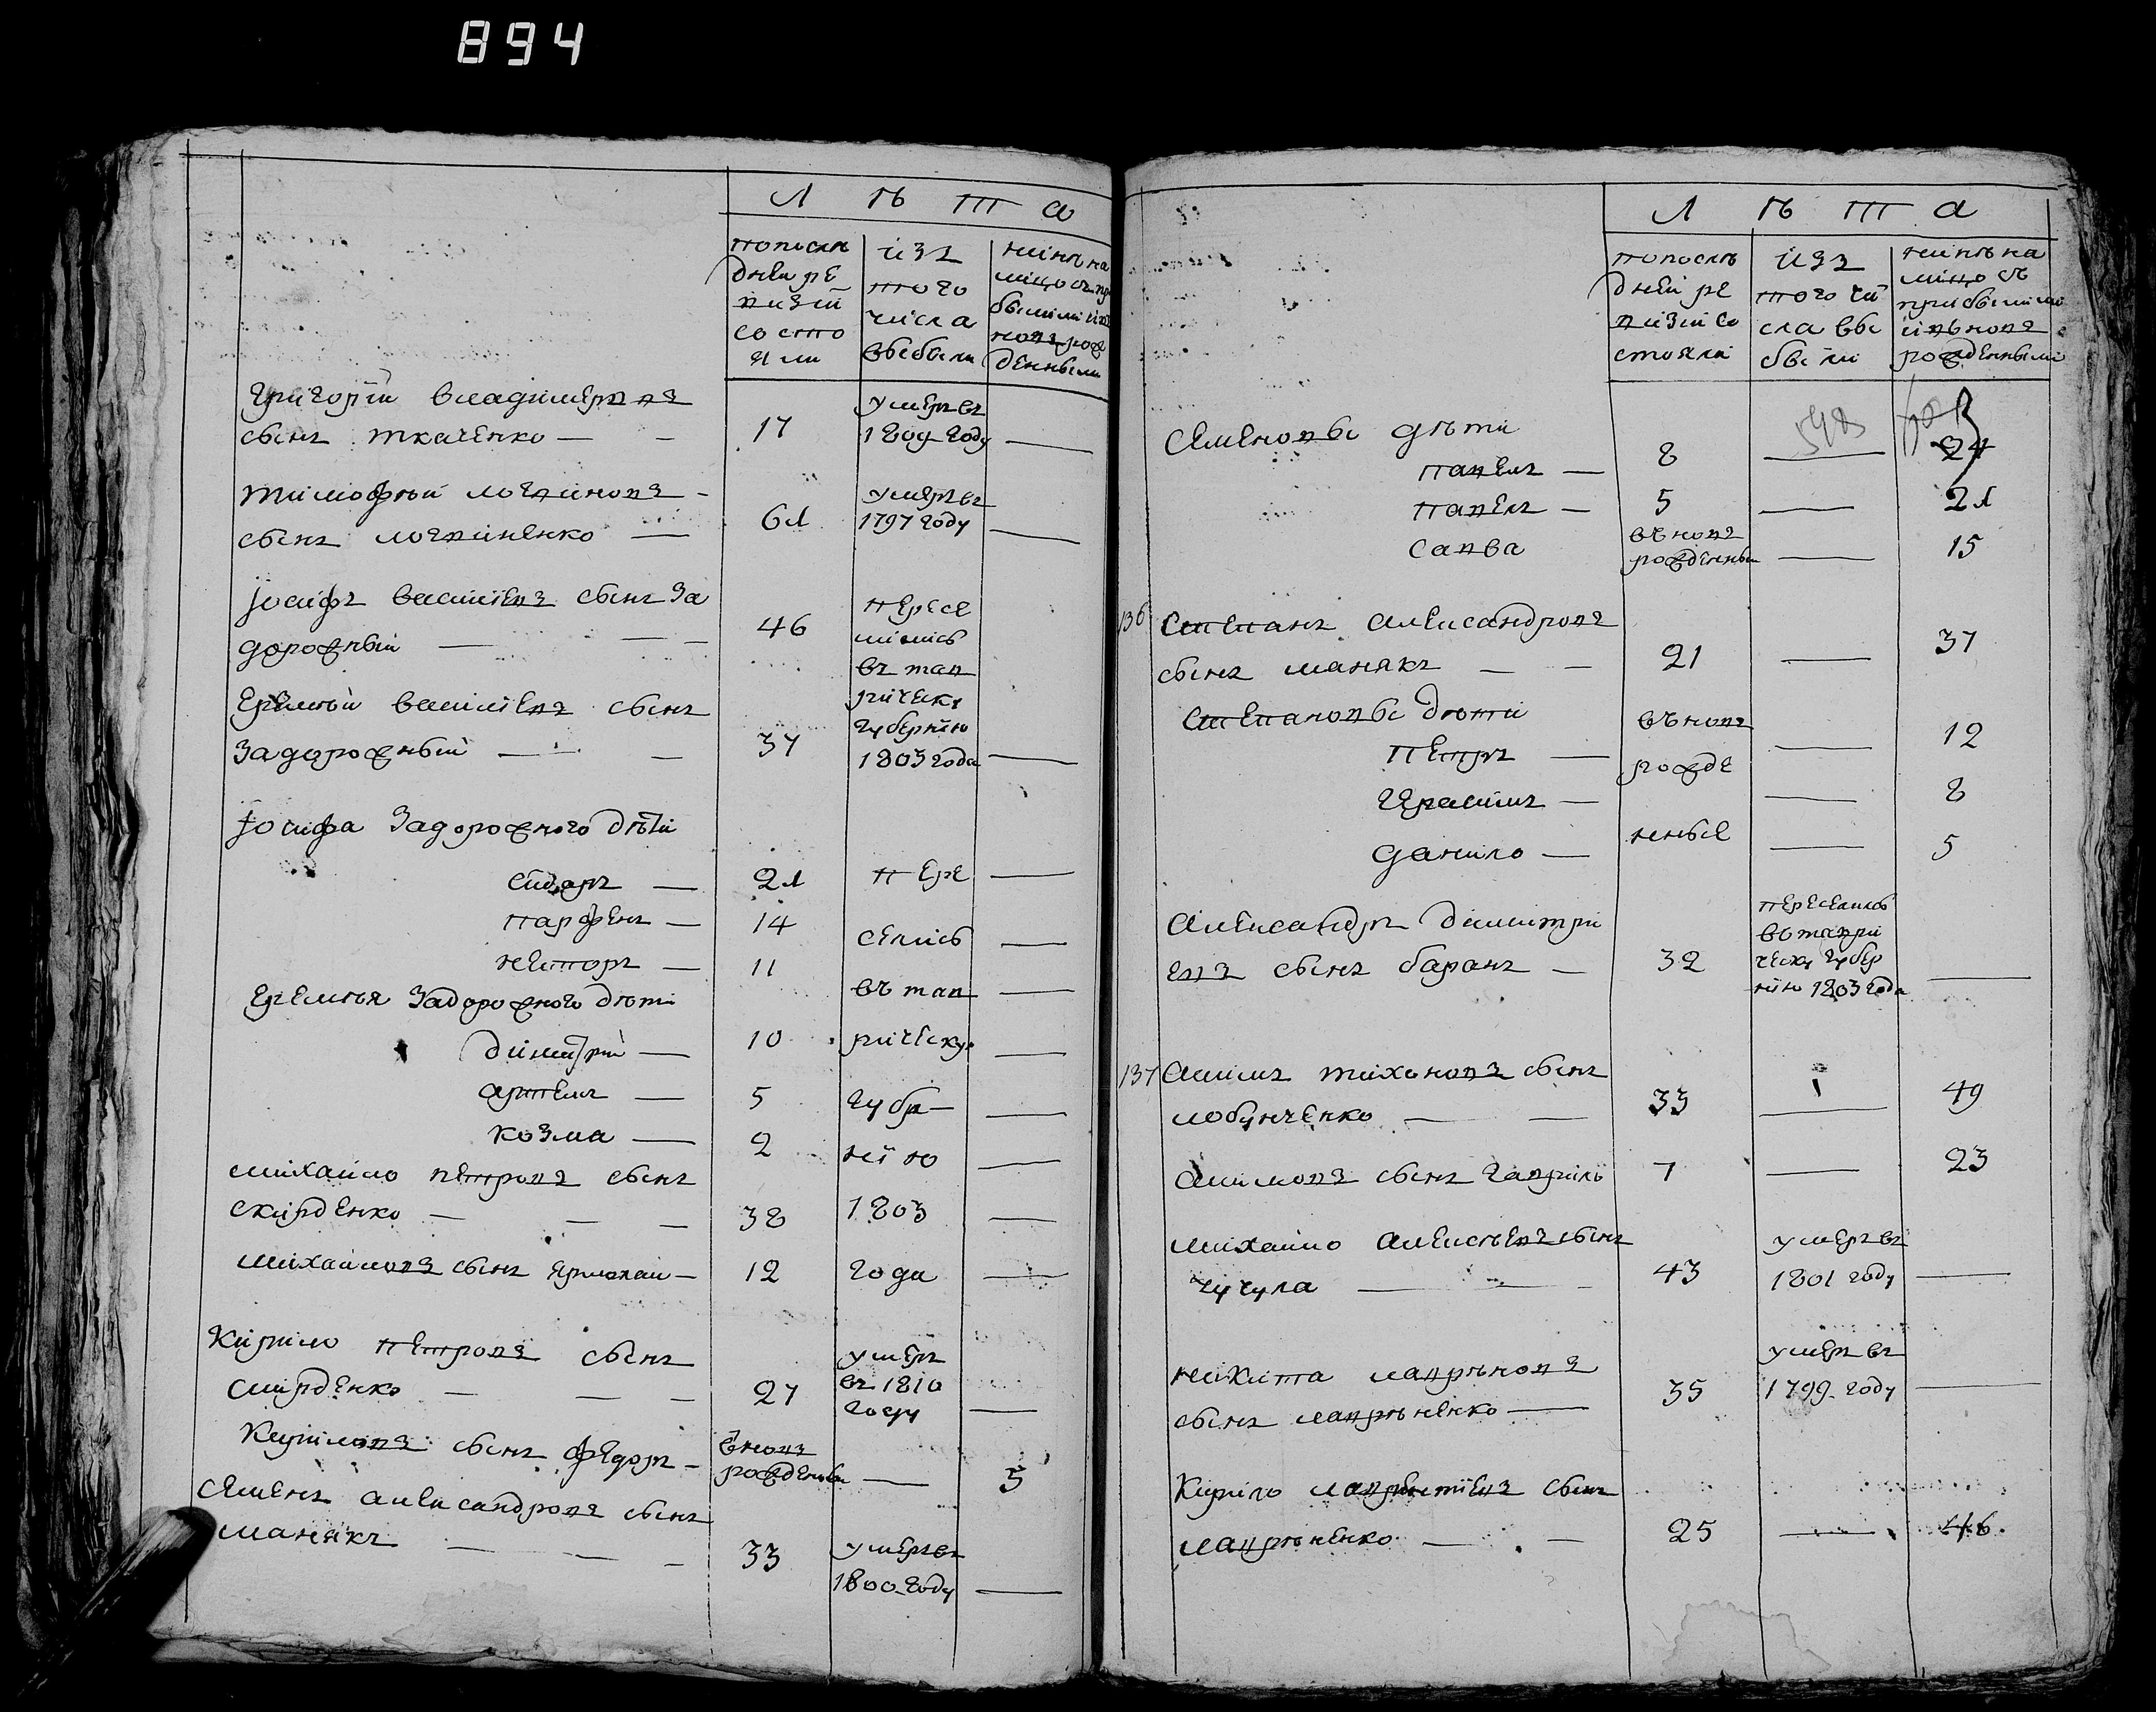 894
Л Ѣ Т А
попослѣ
дней ре
визiй
состо
яли
изъ
того
числа
выбыли
нинѣ на
лицо съ при
былими и въ
новь рож
денными
Григорiй владимеровъ
сынъ ткаченко — — 17 умеръ въ
1809 году —
тимофѣй логвиновъ —
сынъ логвиненко — 61 умеръ въ
1797 году —
Iосифъ васильевъ сынъ За
дорожный — — — 46 пересе
лились
въ тав
рическу
губернiю
1803 года —
Еремѣй васильевъ сынъ
Задорожный — — — 37
Iосифа Задорожного дѣти
сидоръ — 21 пере —
парфенъ — 14 селись —
несторъ — 11 въ тав —
Еремѣя Задорожного дѣти
димитрiй — 10 рическу —
артемъ — 5 губер —
козма — 2 нiю —
михайло петровъ сынъ
скирденко — — — 38 1803 —
михайловъ сынъ ярмолай — 12 года —
Кирило петровъ сынъ
скирденко — — — 27 умеръ
въ 1810
году —
Кириловъ сынъ федоръ — вновъ
рожденный — 5
семенъ александровъ сынъ
манякъ — — — 33 умеръ въ
1800 году —
Л Ѣ Т А
попослѣ
дней ре
визiи со
стояли
изъ
того чи
сла вы
были
нинѣ на
лицо съ
прибылими
и въновь
рожденными
семеновы дѣти
павелъ — 8 — 24
павелъ — 5 — 21
савва въновъ
рожденный — 15
136 степанъ александровъ
сынъ манякъ — — 21 — 37
степановы дѣти
петръ — въновь — 12
рожде
герасимъ — — 8
данило — нные — 5
александръ димитри
евъ сынъ баранъ — 32 переселилсь
въ таври
ческу губер
нiю 1803 года —
137 акимъ тихоновъ сынъ
лобунченко — — 33 — 49
акимовъ сынъ гаврило 7 — 23
михайло алексѣевъ сынъ
чучула — — — 43 умеръ въ
1801 году —
никита лаврѣновъ
сынъ лаврѣненко — 35 умеръ въ
1799 году —
Кирило лаврентiевъ сынъ
лаврѣненко — — 25 — 46